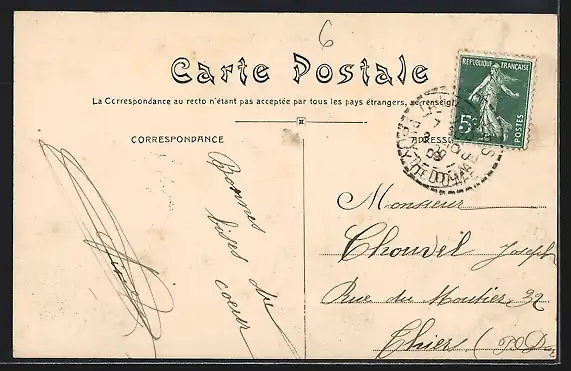 6
Carte Postale
La Correspondance au recto n'étant pas acceptée par tous les pays étrangers, se renseigner
CORRESPONDANCE
ADRESSE
RÉPUBLIQUE FRANÇAISE
5c
POSTES
PUY-DE-DOME
Bonnes
bises du
coeur
Monsieur
Chouvel Joseph
Rue du Moutier, 32
Thiers (P. D.